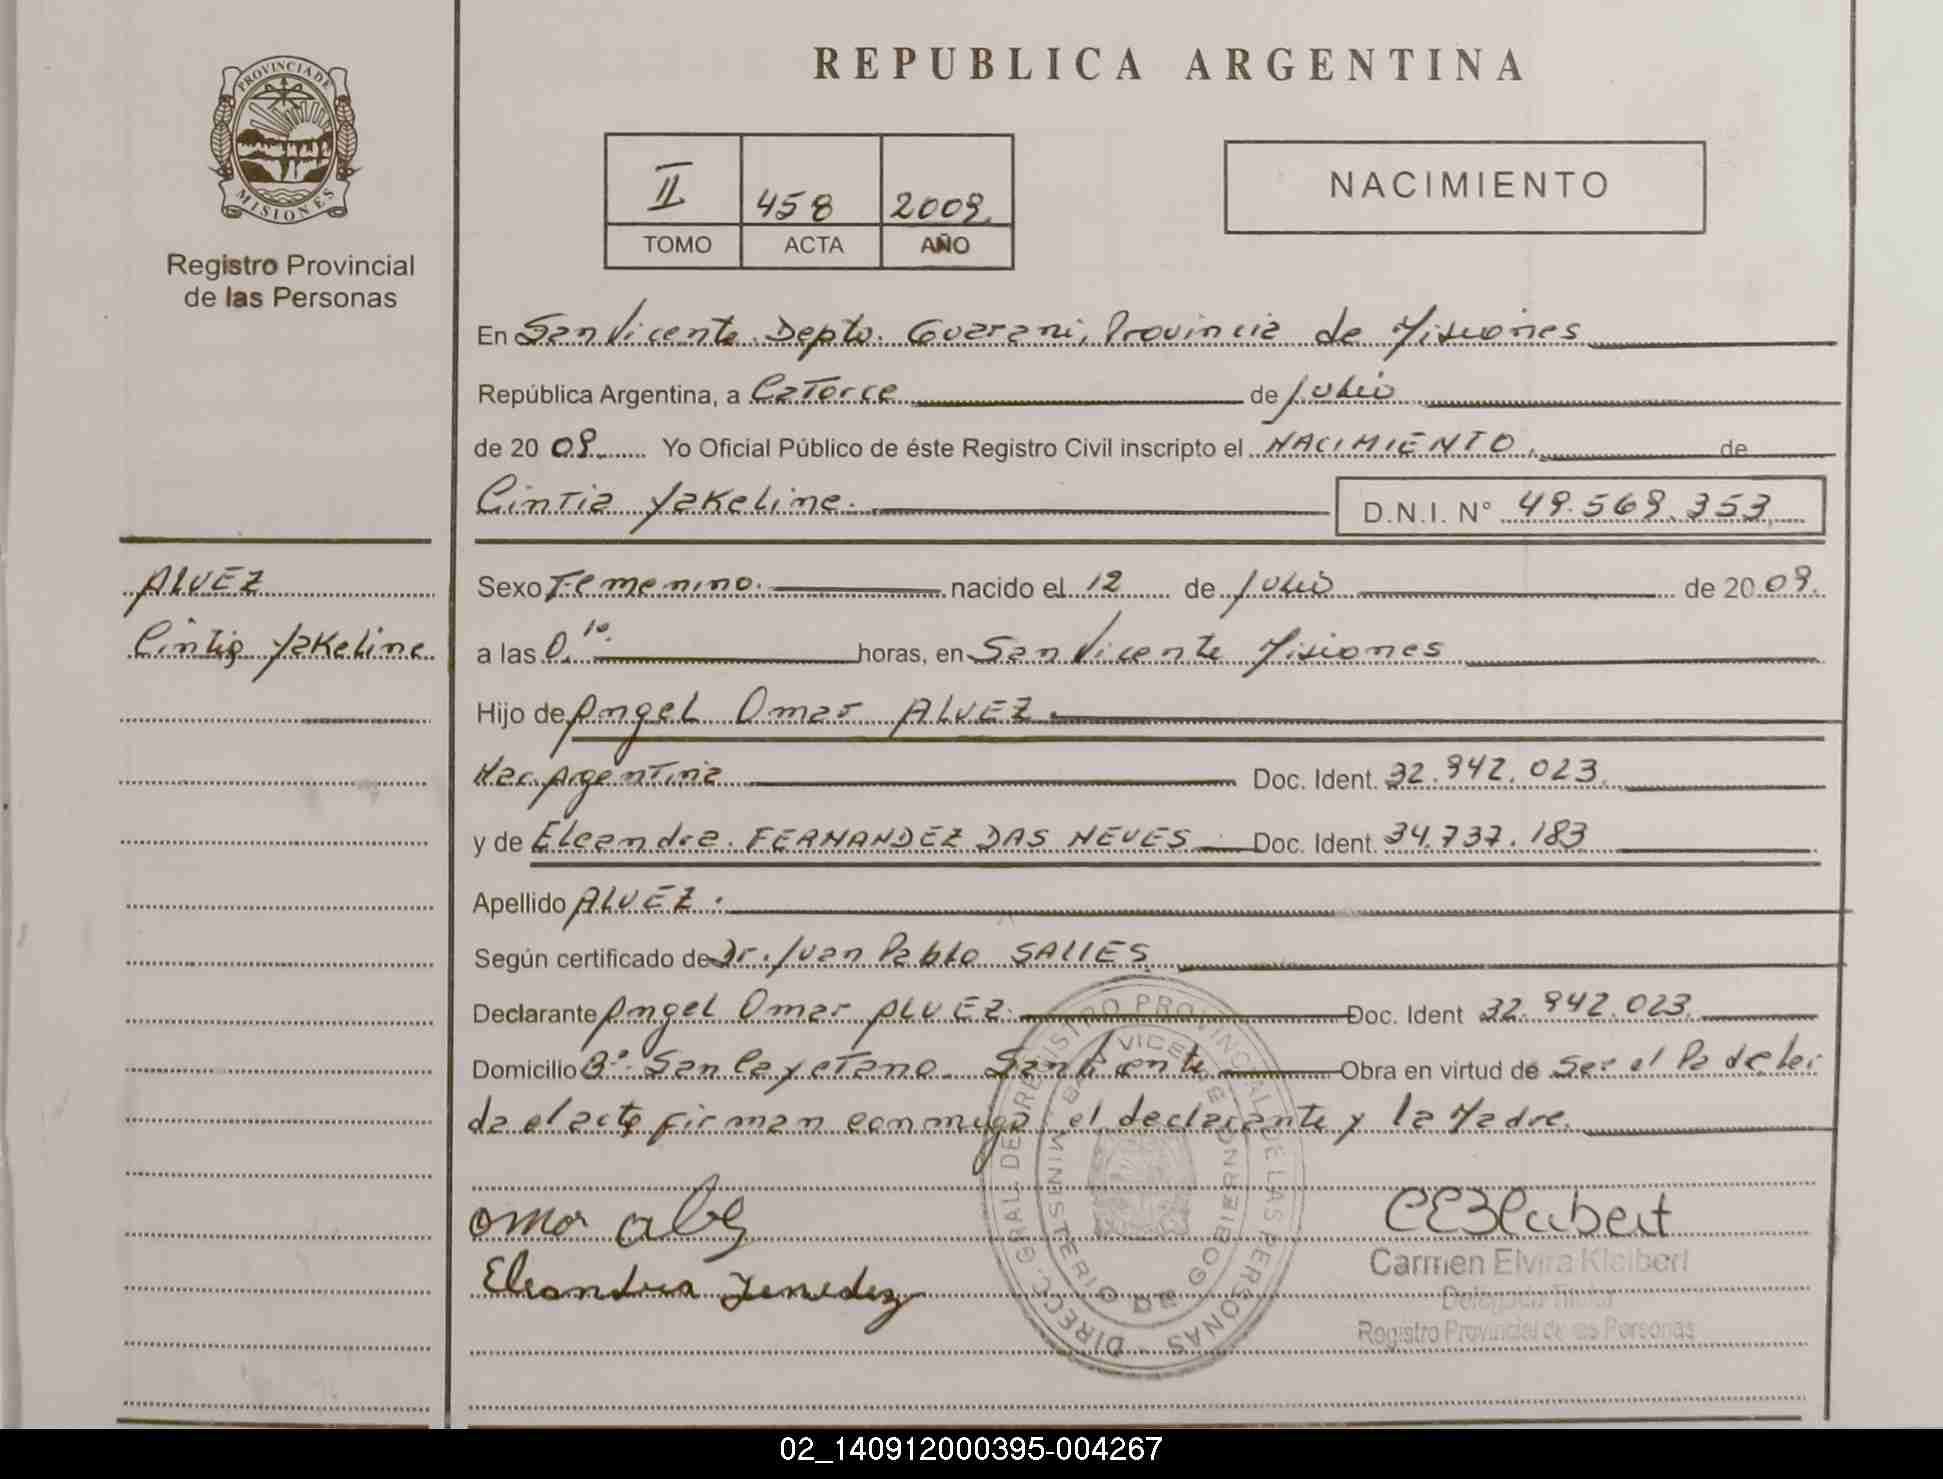 REPUBLICA ARGENTINA
PROVINCIA DE
MISIONES
Registro Provincial
de las Personas
II 458 2009
TOMO ACTA AÑO
NACIMIENTO
En San Vicente. Depto. Guarani, Provincia de Misiones
República Argentina, a Catorce de Julio
de 20 09 Yo Oficial Público de éste Registro Civil inscripto el NACIMIENTO, de
Cintia Yakeline. D.N.I. N° 49.569.353
ALVEZ
Cintia Yakeline
Sexo Femenino. nacido el 12 de Julio de 20 09.
a las 0,10. horas, en San Vicente Misiones
Hijo de Angel Omar ALVEZ.
Nac. Argentina Doc. Ident. 32.942.023.
y de Eleandra. FERNANDEZ DAS NEVES Doc. Ident. 34.737.183
Apellido ALVEZ.
Según certificado de Dr. Juan Pablo SALIES
Declarante Angel Omar ALVEZ. Doc. Ident 32.942.023.
Domicilio B°. San Cayetano. San Vicente Obra en virtud de Ser el Pa de lei
da el acta firman conmigo el declarante y la Madre.
Omar
Eleandra
Carmen Elvira Kleibert
Delegada Titular
Registro Provincial de las Personas
DIRECC. GRAL. DE REGISTRO PROVINCIAL DE LAS PERSONAS
MINISTERIO DE GOBIERNO
VICENTE
02_140912000395-004267